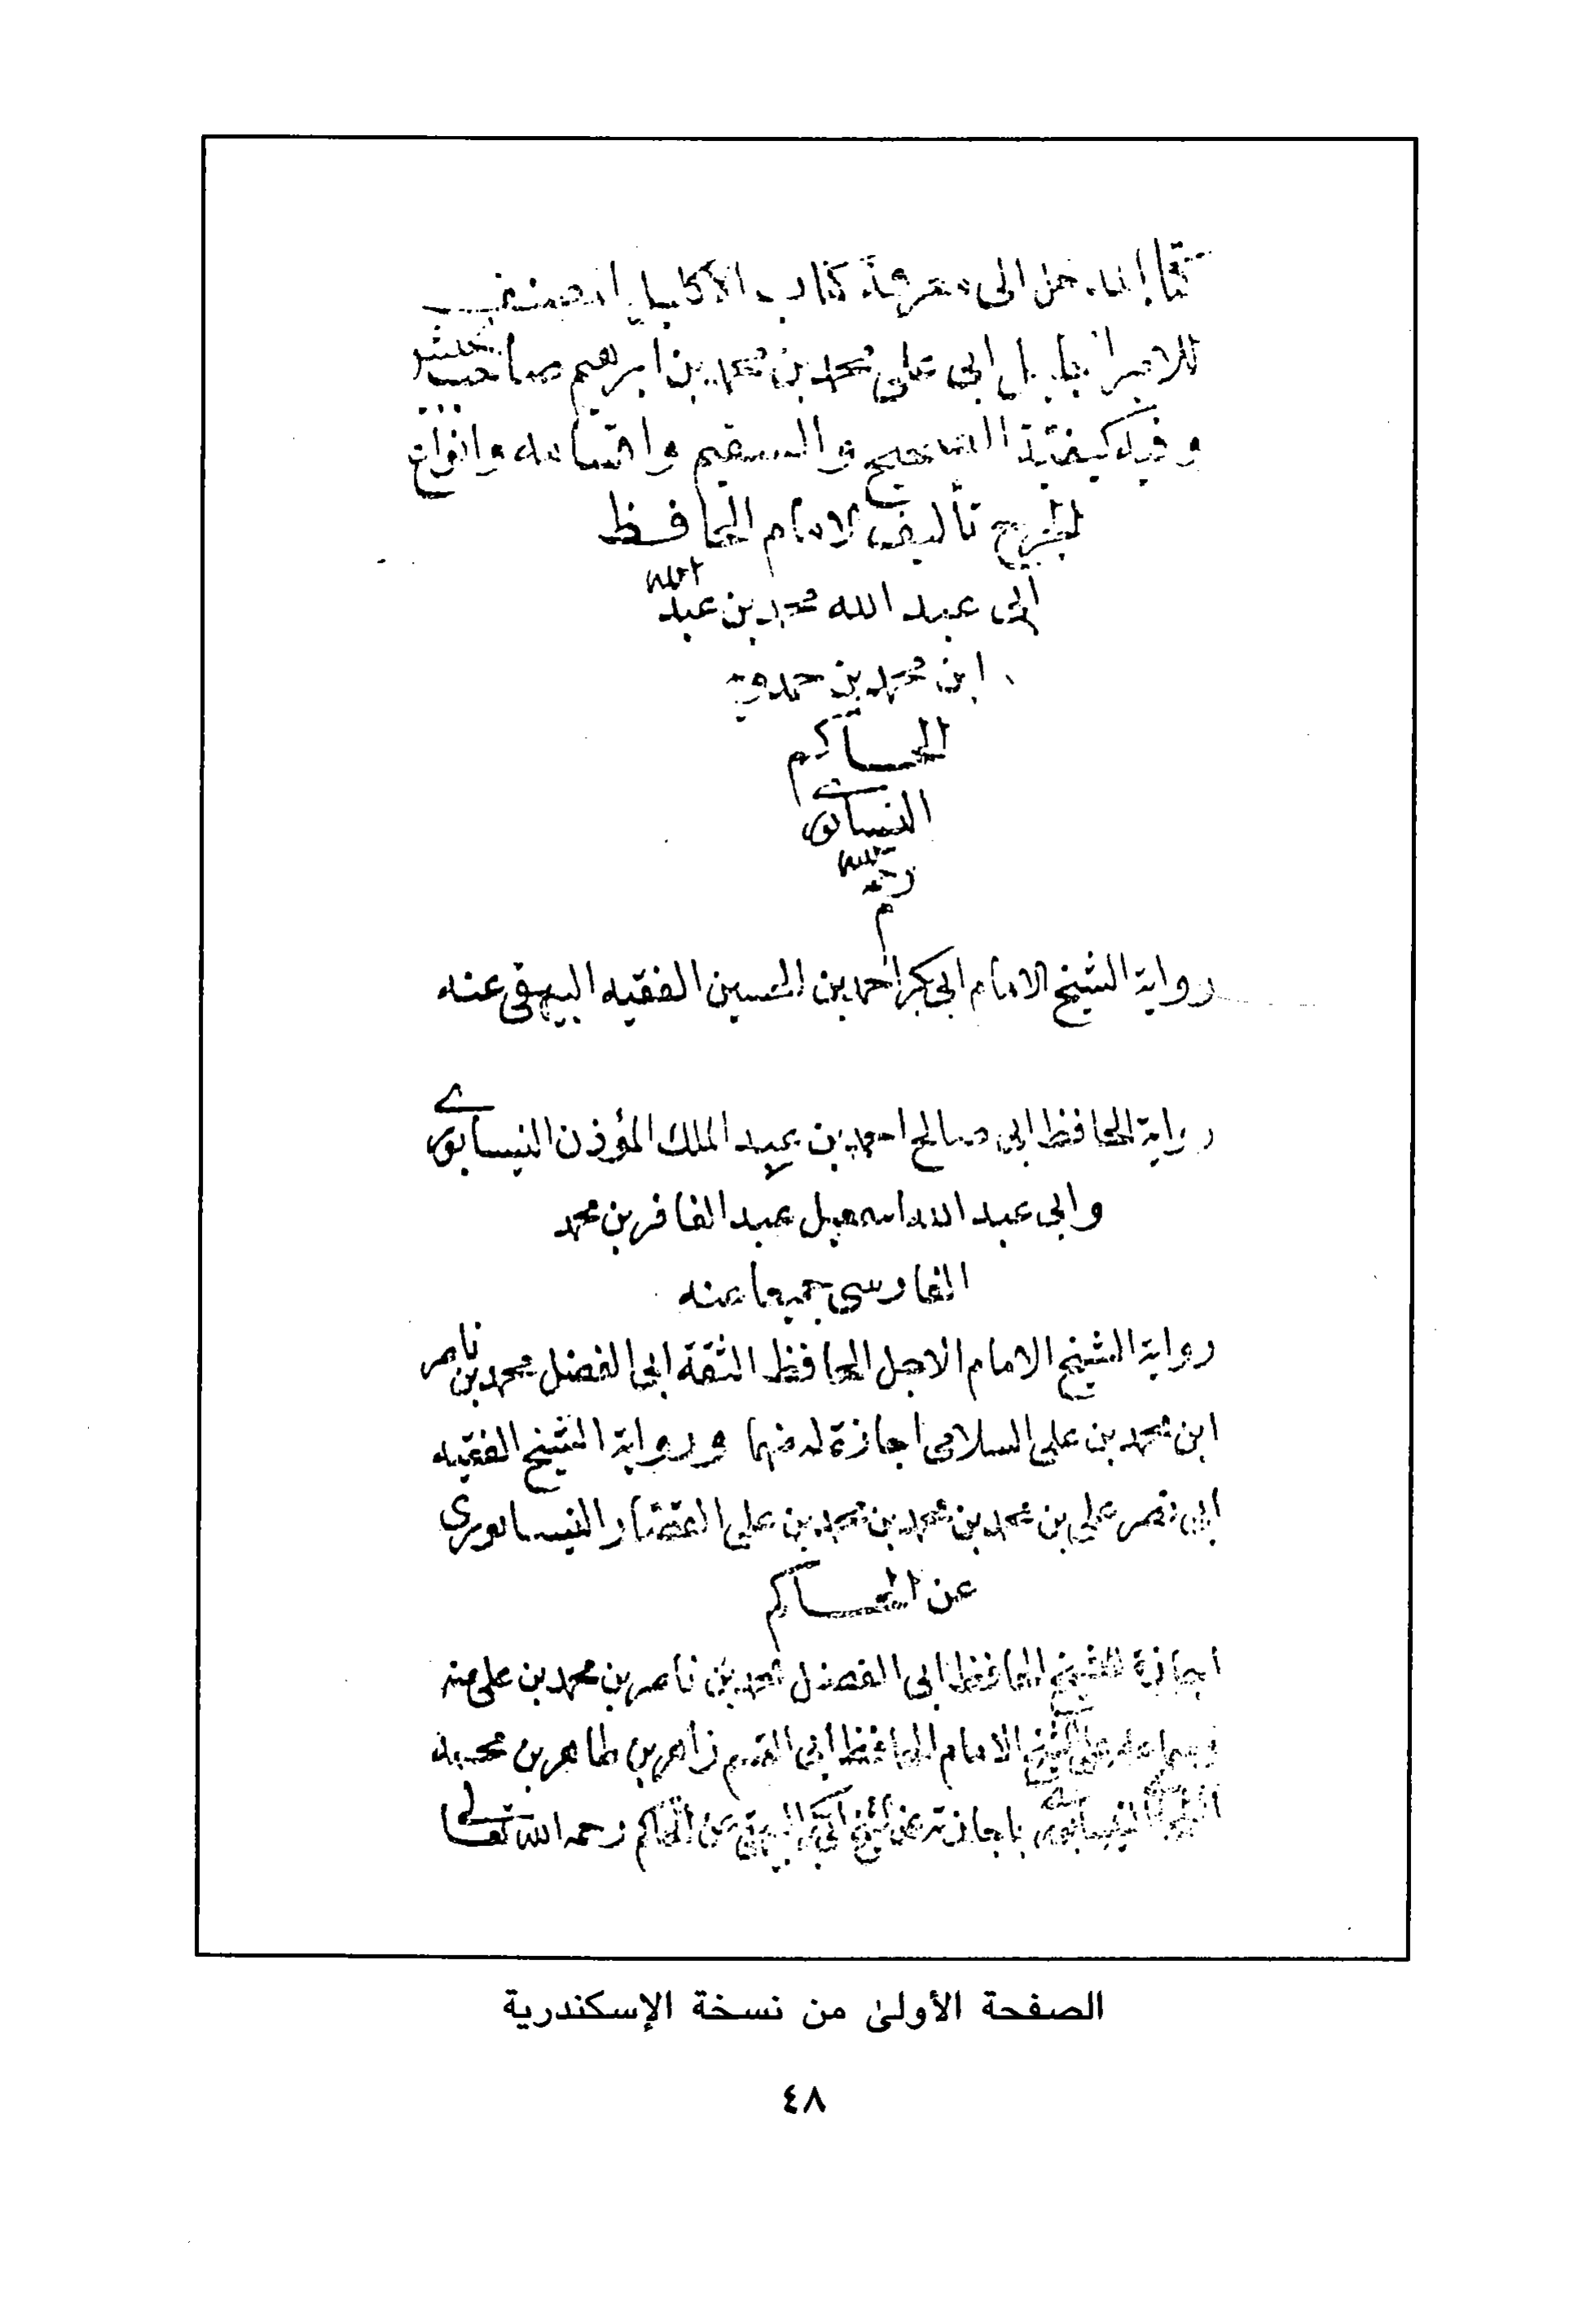 كتاب المدخل الى معرفة كتاب الاكليل المصنف
للامير الجليل ابى على محمد بن محمد بن ابرهيم صاحب جيش
وفيه كيفية الصحيح والسقيم واقسامه وانواع
الجرح تأليف الامام الحافظ
ابى عبد الله محمد بن عبد الله
ابن محمد بن حمدويه
الحاكم
النيسابورى
رحمه الله
رواية الشيخ الامام ابى بكر احمد بن الحسين الفقيه البيهقى عنه
رواية الحافظ ابى صالح احمد بن عبد الملك المؤذن النيسابورى
وابى عبد الله اسمعيل عبد الغافر بن محمد
الفارسى جميعا عنه
رواية الشيخ الامام الاجل الحافظ الثقة ابى الفضل محمد بن ناصر
ابن محمد بن على السلامى اجازة له منهما ورواية الشيخ الفقيه
ابى نصر على بن محمد بن محمد بن محمد بن على النيسابورى
عن الحاكم
اجازة للشيخ الحافظ ابى الفضل محمد بن ناصر بن محمد بن على عنه
الشيخ الامام الحافظ ابى القسم زاهر بن طاهر بن محمد
النيسابورى باجازته عن الشيخ ابى بكر البيهقى عن الحاكم رحمه الله تعالى
الصفحة الأولىٰ من نسخة الإسكندرية
٤٨